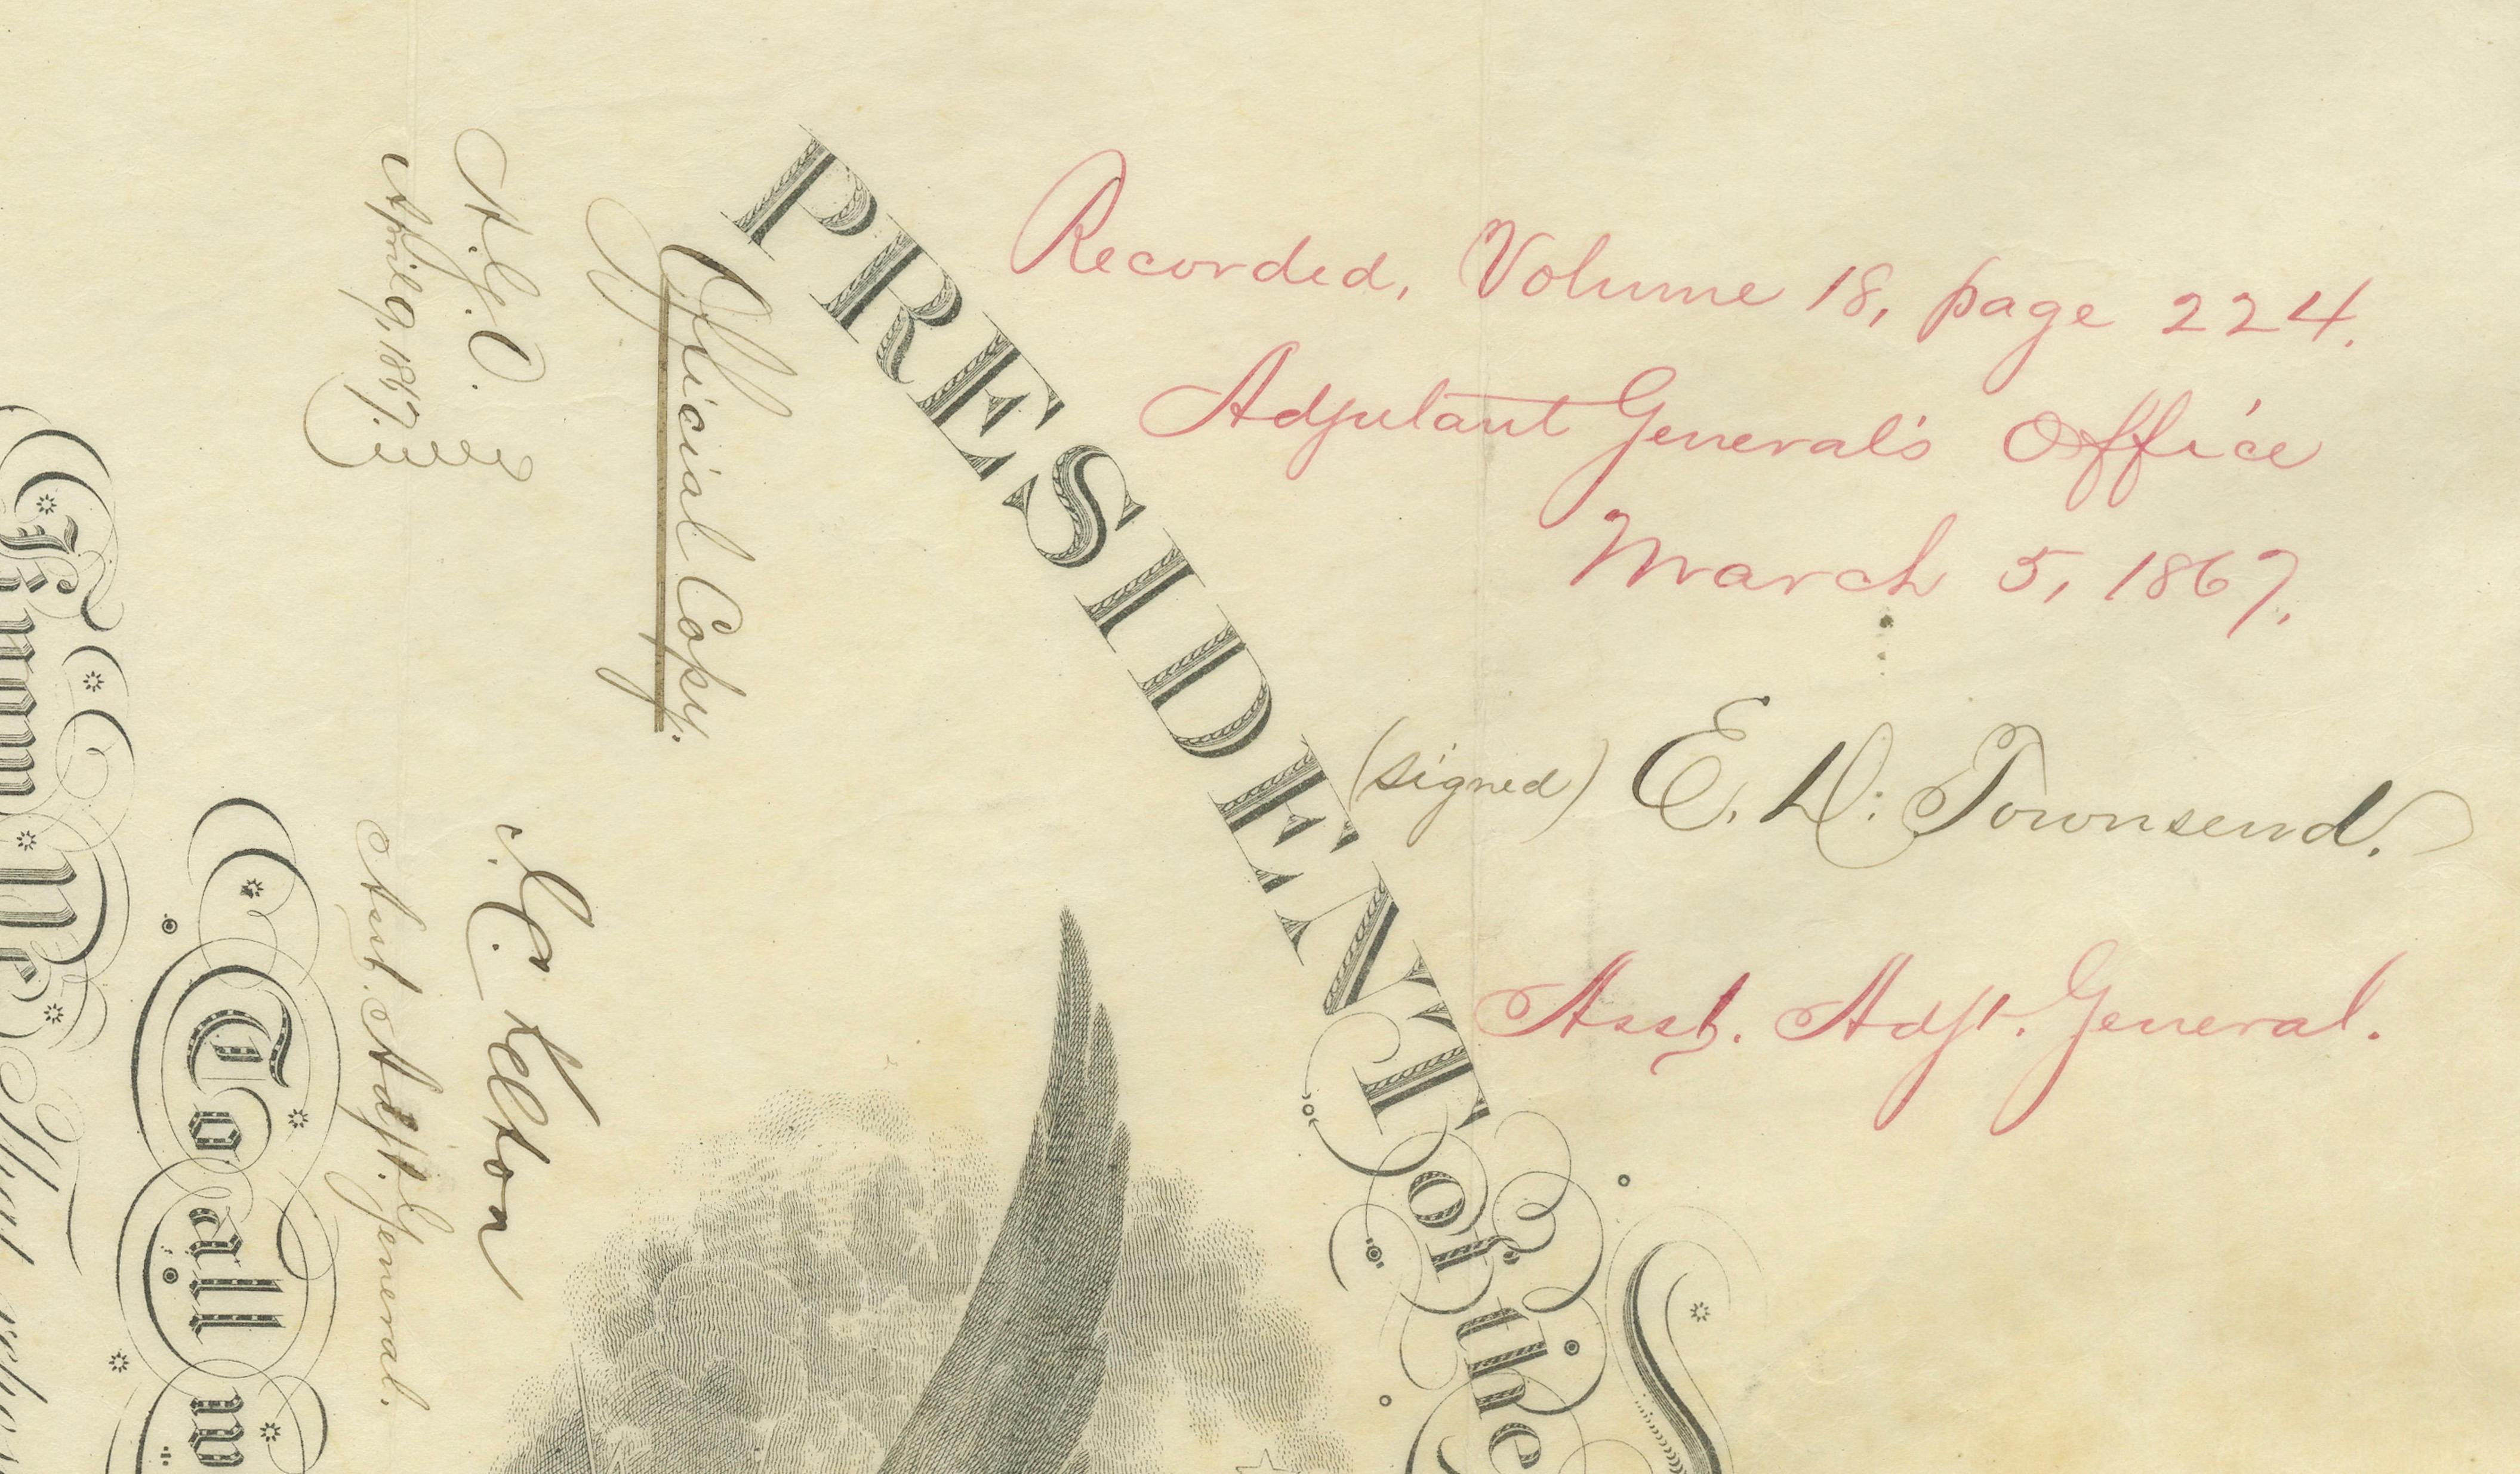 Recorded, Volume 18, page 224.
Adjutant General's Office
March 5, 1867.
(signed) E. D. Townsend.
Asst. Adjt. General.
PRESIDENT
of the
Official Copy.
A.G.O.
April 9, 1867.
J. C. Kelton
Asst. Adjt. General.
To all
Know Ye